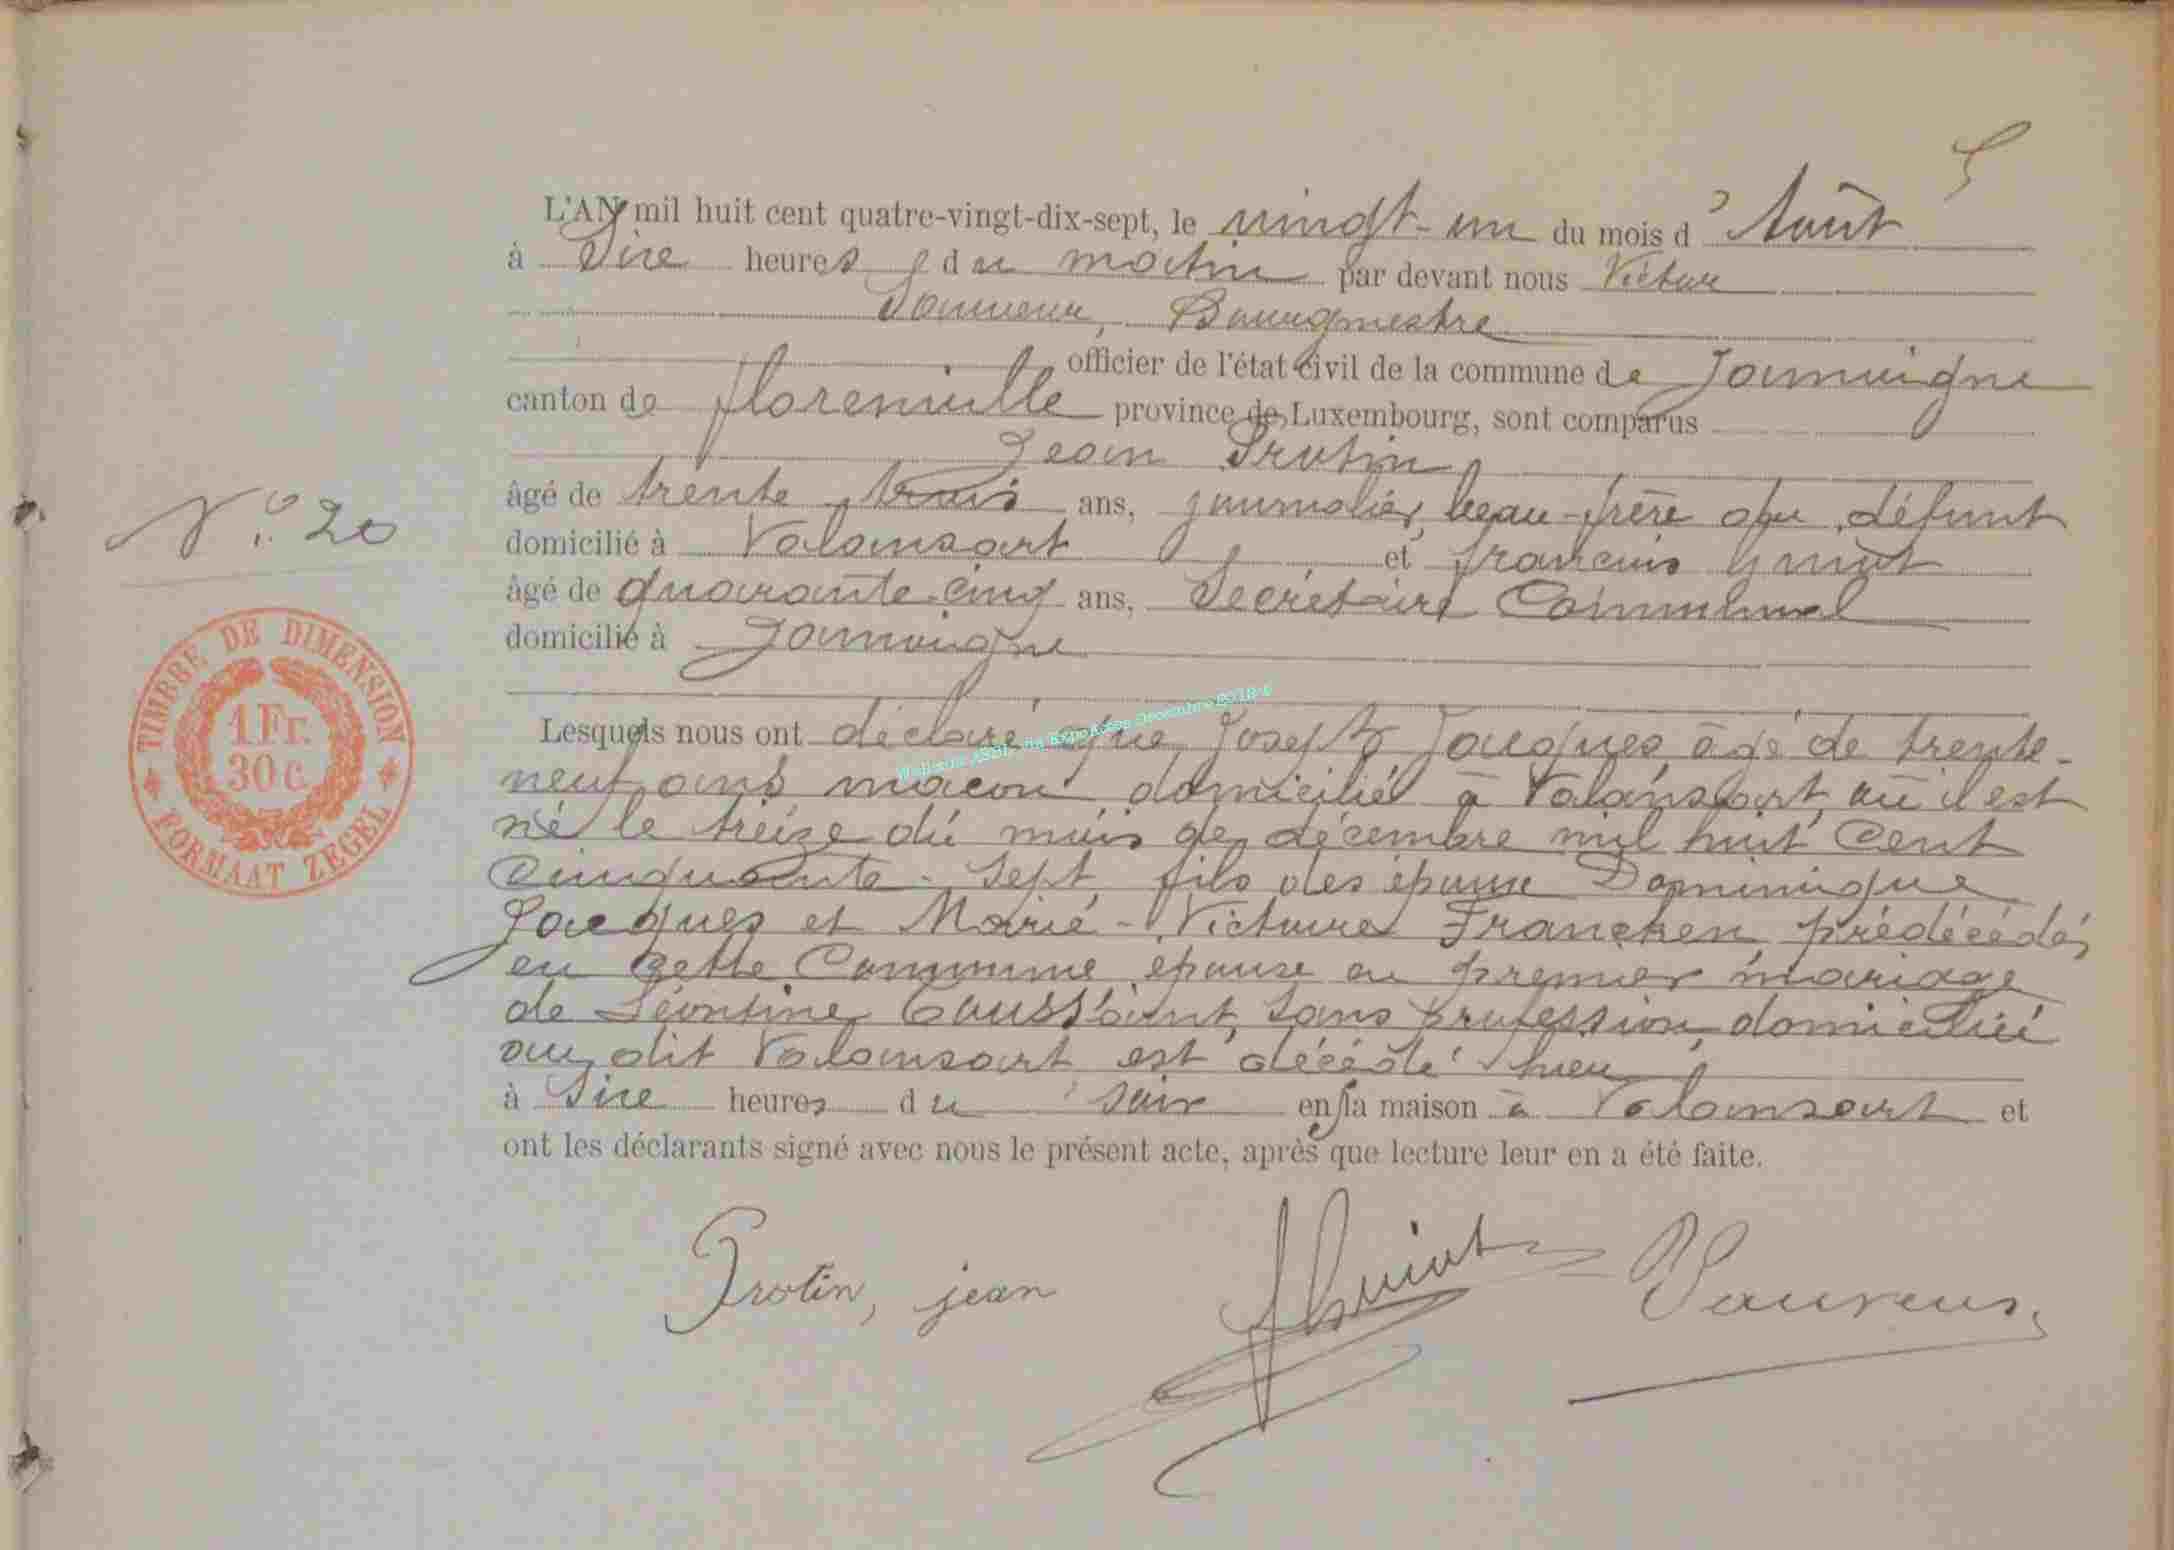 5
L'AN mil huit cent quatre-vingt-dix-sept, le vingt-un du mois d'Août
à Dix heures du matin par devant nous Victor
Bourgmestre
officier de l'état civil de la commune de Jamoigne
canton de florenville province de Luxembourg, sont comparus
Jean Protin
âgé de trente trois ans, journalier, beau-frère du défunt
N.º 20
domicilié à Valansart et françois
âgé de quarante-cinq ans, Secrétaire Communal
domicilié à Jamoigne
TIMBRE DE DIMENSION
1 Fr.
30 c.
FORMAAT ZEGEL
Lesquels nous ont déclaré que Joseph Jacques, âgé de trente-
neuf ans maçon domicilié à Valansart où il est
né le treize du mois de décembre mil huit cent
cinquante-sept, fils des époux Dominique
Jacques et Marie-Victoire Francken, prédécédés
en cette Commune, époux en premier mariage
de Léontine Toussaint, sans profession, domiciliée
au dit Valansart, est décédé hier
à Dix heures du soir en sa maison à Valansart et
ont les déclarants signé avec nous le présent acte, après que lecture leur en a été faite.
Protin, jean